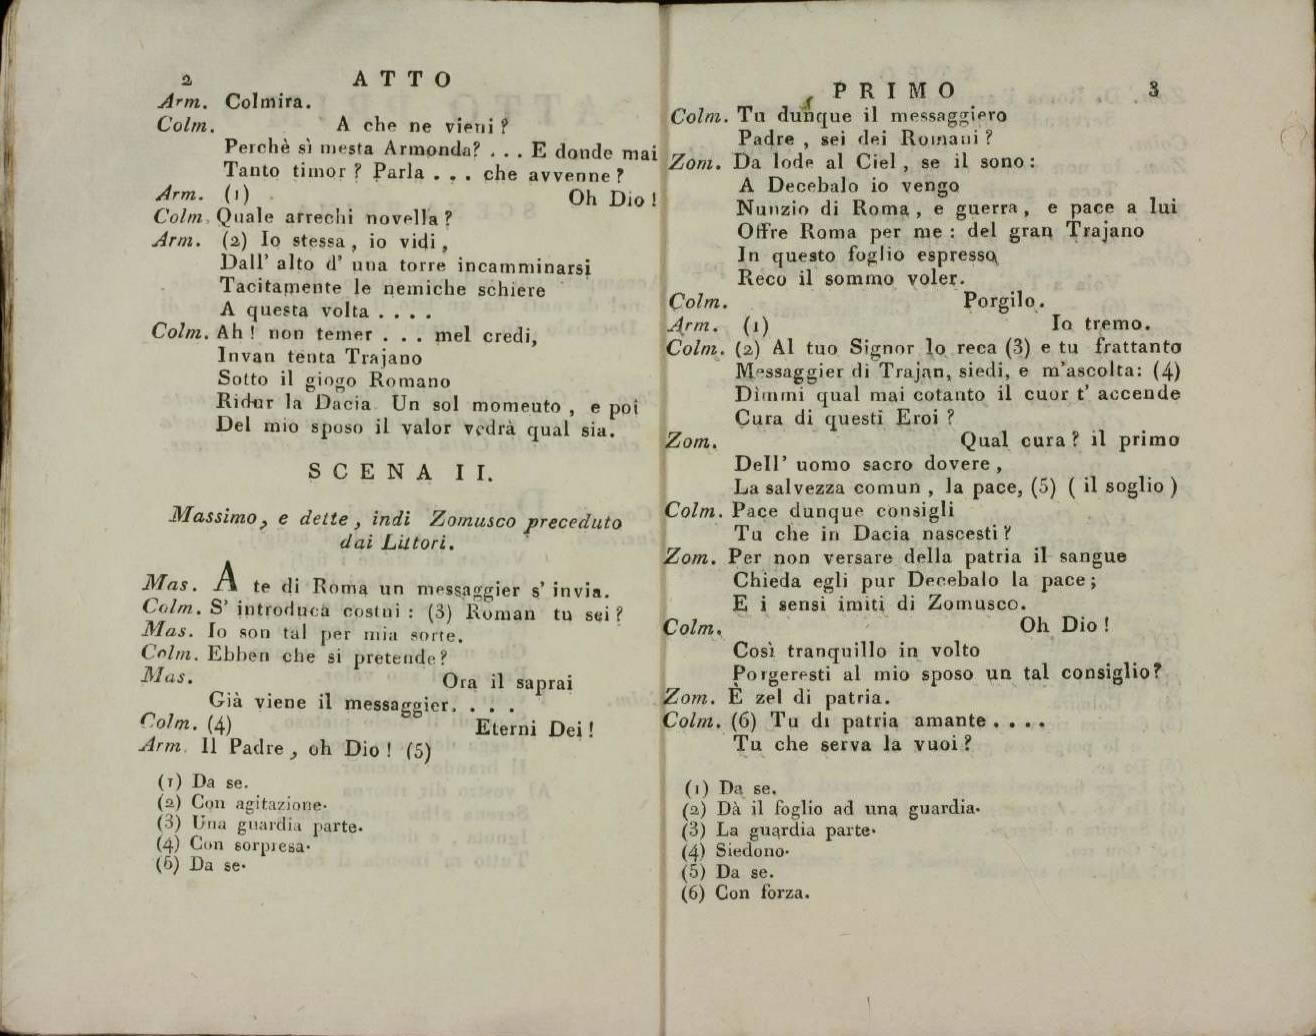 2 ATTO
Arm. Colmira.
Colm. A che ne vieni?
Perchè sì mesta Armonda? . . . E donde mai
Tanto timor? Parla . . . che avvenne?
Arm. (1) Oh Dio!
Colm. Quale arrechi novella?
Arm. (2) Io stessa, io vidi,
Dall' alto d' una torre incamminarsi
Tacitamente le nemiche schiere
A questa volta . . . .
Colm. Ah! non temer . . . mel credi,
Invan tenta Trajano
Sotto il giogo Romano
Ridur la Dacia Un sol momeuto, e poi
Del mio sposo il valor vedrà qual sia.
SCENA II.
Massimo, e dette, indi Zomusco preceduto
dai Littori.
Mas. A te di Roma un messaggier s' invia.
Colm. S' introduca costui: (3) Roman tu sei?
Mas. Io son tal per mia sorte.
Colm. Ebben che si pretende?
Mas. Ora il saprai
Già viene il messaggier. . . .
Colm. (4) Eterni Dei!
Arm. Il Padre, oh Dio! (5)
(1) Da se.
(2) Con agitazione.
(3) Una guardia parte.
(4) Con sorpresa.
(5) Da se.
PRIMO 3
Colm. Tu dunque il messaggiero
Padre, sei dei Romani?
Zom. Da lode al Ciel, se il sono:
A Decebalo io vengo
Nunzio di Roma, e guerra, e pace a lui
Offre Roma per me: del gran Trajano
In questo foglio espresso
Reco il sommo voler.
Colm. Porgilo.
Arm. (1) Io tremo.
Colm. (2) Al tuo Signor lo reca (3) e tu frattanto
Messaggier di Trajan, siedi, e m'ascolta: (4)
Dimmi qual mai cotanto il cuor t' accende
Cura di questi Eroi?
Zom. Qual cura? il primo
Dell' uomo sacro dovere,
La salvezza comun, la pace, (5) ( il soglio )
Colm. Pace dunque consigli
Tu che in Dacia nascesti?
Zom. Per non versare della patria il sangue
Chieda egli pur Decebalo la pace;
E i sensi imiti di Zomusco.
Colm. Oh Dio!
Così tranquillo in volto
Porgeresti al mio sposo un tal consiglio?
Zom. È zel di patria.
Colm. (6) Tu di patria amante . . . .
Tu che serva la vuoi?
(1) Da se.
(2) Dà il foglio ad una guardia.
(3) La guardia parte.
(4) Siedono.
(5) Da se.
(6) Con forza.